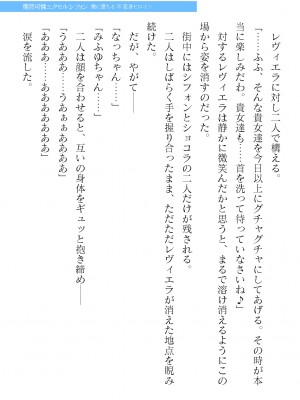 魔閃騎攻エクセルシフォン 戦に堕ちる不屈身ヒロイン
レヴィエラに対し二人で構える。
「……ふふ、そんな貴女達を今日以上にグチャグチャにしてあげる。その時が本
当に楽しみだわ。貴女達も……首を洗って待っていなさいね♪」
対するレヴィエラは静かに微笑んだかと思うと、まるで溶け消えるようにこの
場から姿を消すのだった。
街中にはシフォンとショコラの二人だけが残される。
二人はしばらく手を握り合ったまま、ただただレヴィエラが消えた地点を睨み
続けた。
だが、やがて――
「なっちゃん……」
「みふゆちゃん……」
二人は顔を合わせると、互いの身体をギュッと抱き締め――
「うああああ……うあぁぁああああ」
「あああ……あああああああ」
涙を流した。